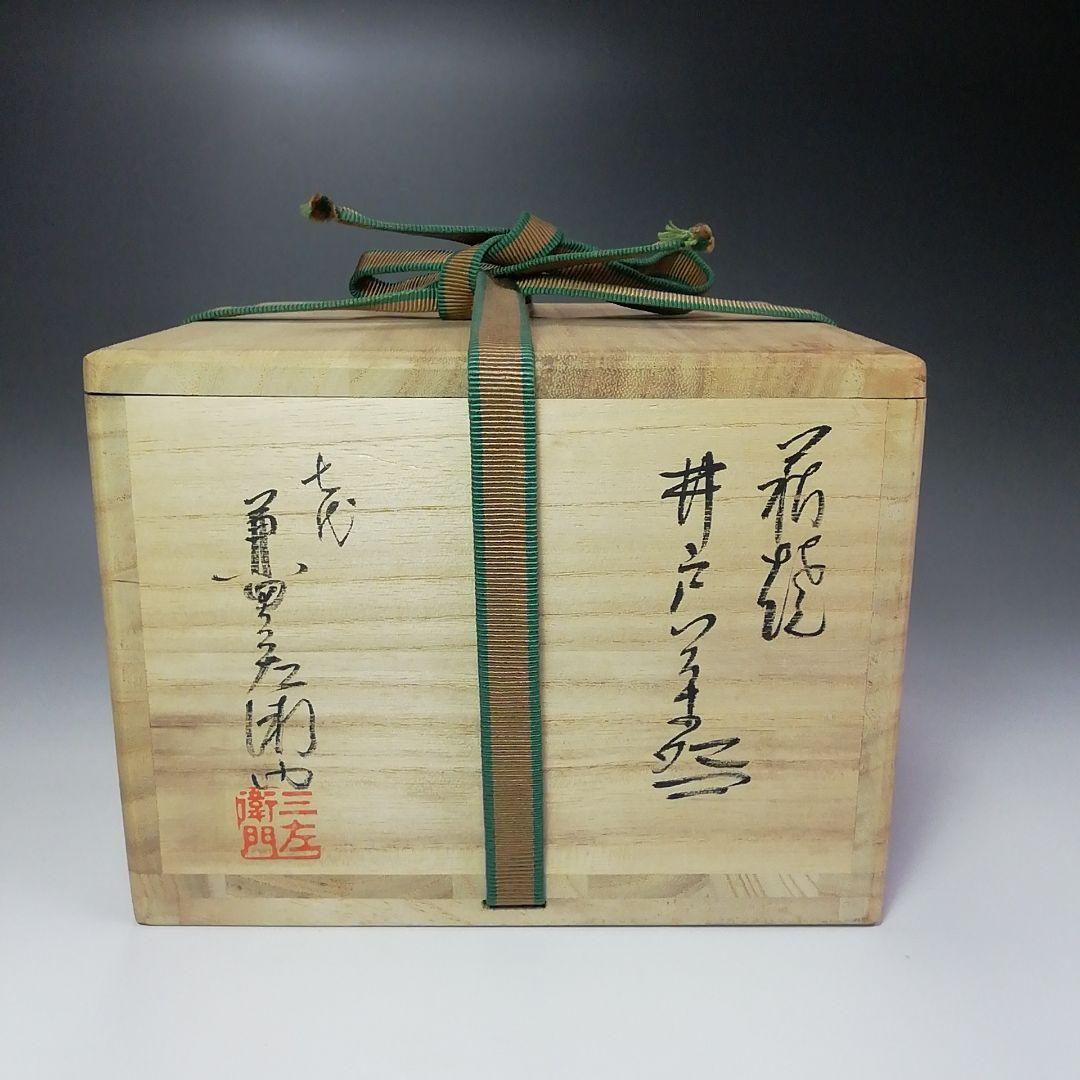 萩焼
井戸茶碗
七代
兼田三左衛門
三左
衛門